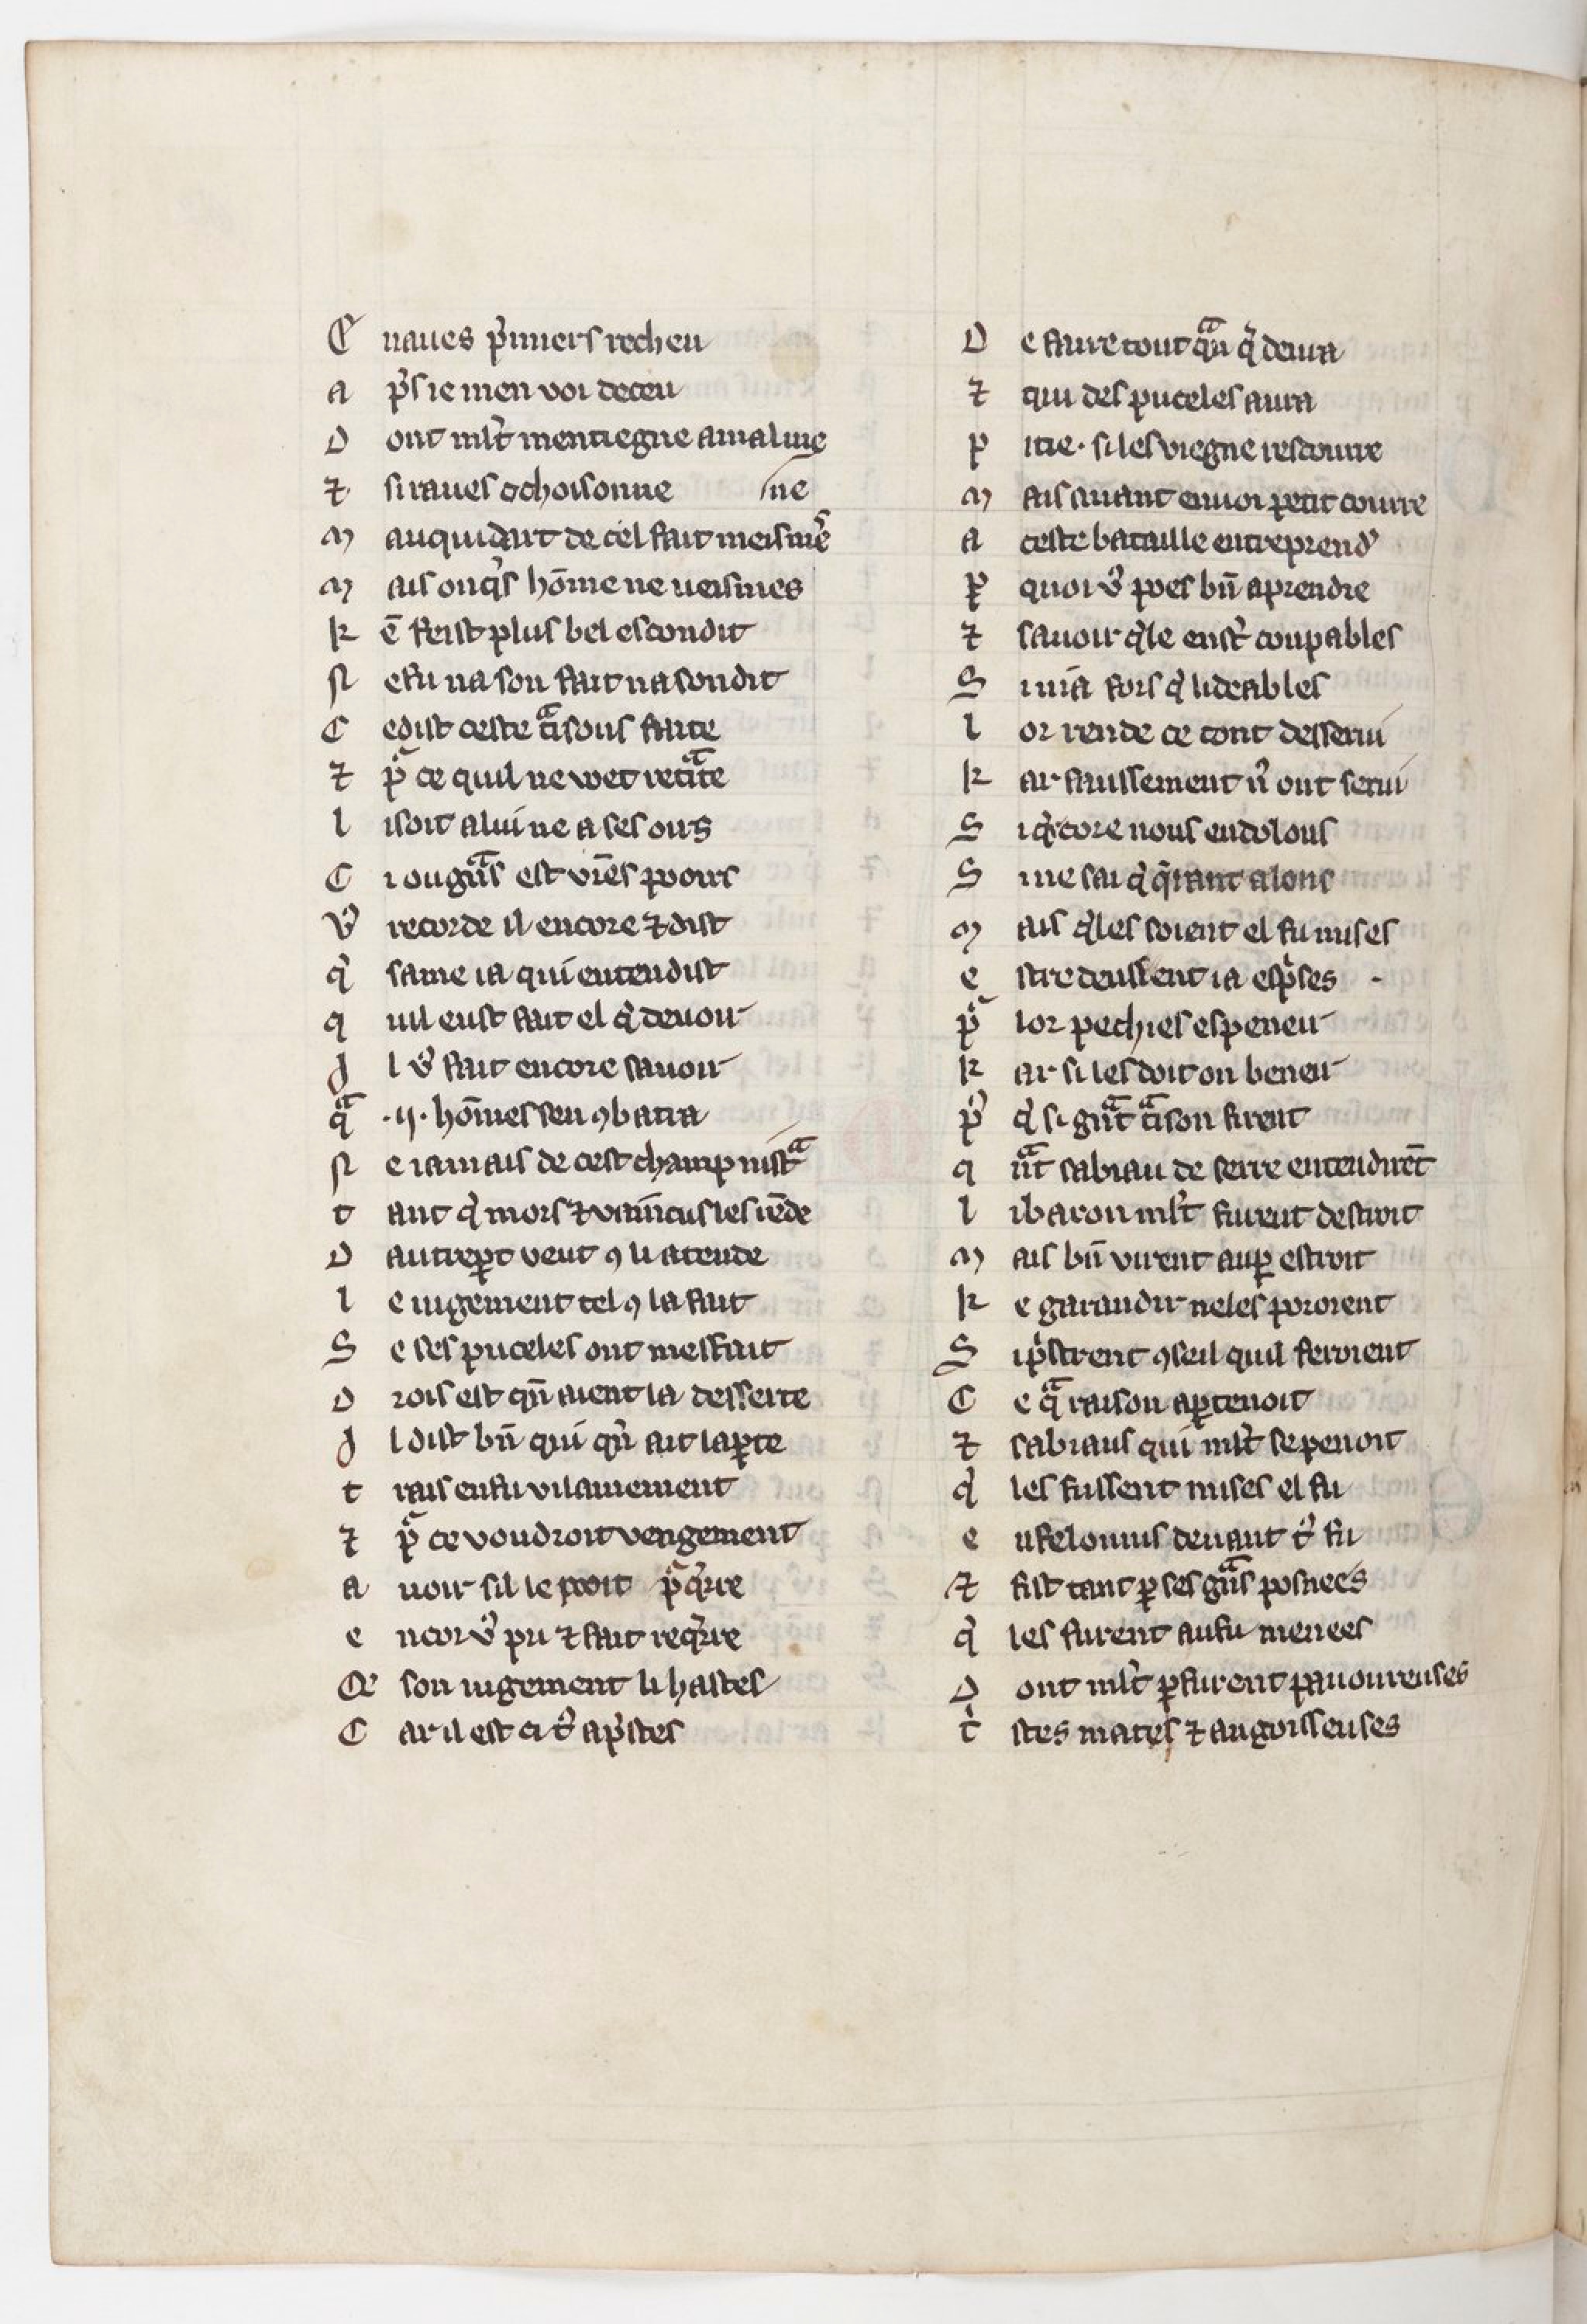 E naues p̾miers recheu
a p̾s ie men voi deceu
D ont ml̾t men tiegne a mal me
⁊ si raues ochoisonne ne
M au quidart de cel fait meisme
M ais onq̾s hōme ne ueismes
K ē feist plus bel escondit
N e fu na son fait na son dit
C e dist ceste tͣisons faite
⁊ pͬ ce quil ne wet retͣite
l i soit a lui ne a ses oirs
C i ou gͣns est vr̄es pooirs
v̾ recorde il encore ⁊ dist
q̾ same ia qui entendist
q uil eust fait el q̾ deuoir
J l v̾ fait encore sauoir
qͣ .ij. hōmes sen ꝯbatra
N e iamais de cest champ nistͣ
t ant q̾ mors ⁊ vaincus les rēde
D autrep̱t veut ꝯ li atende
l e iugement tel ꝯ la fait
S e ses puceles ont mesfait
D rois est qn̄ aient la desserte
J l dist bn̄ qui qn̾ ait la ꝑte
t rais en fu vilainement
⁊ pͬ ce voudroit vengement
a uoir sil le pooit pͬq̾rre
e ncor v̾ pri ⁊ fait req̾rre
Q̾ son iugement li hastes
C ar il est ci t̾ ap̾stes
D e faire tout qͣn q̾ deura
⁊ qui des puceles aura
p itie. si les viegne rescourre
M ais auant en uoi petit courre
a ceste bataille entreprend̾
P̱ quoi v̾ poes bn̄ aprendre
⁊ sauoir q̾le en st̾ coupables
S i nia fors q̾ li deables
l or rende ce cont desserui
K ar faussement n̾ ont serui
S i q̾core nous en dolons
S i ne sai q̾ q̾rant alons
M ais q̾les soient el fu mises
e stre deussent ia esp̾ses
pͬ lor pechies espeneir
K ar si les doit on beneir
p̾ q̾ si gͣnt tͣison firent
q ͣnt sabiau de serre entendirēt
l i baron ml̾t furent destroit
M ais bn̄ virent au ꝑ estroit
K e garandir ne les pororent
S i p̾strent ꝯseil quil feroient
C e qͣ raison aꝑtenoit
⁊ sabiaus qui ml̾t se penoit
q̾ les fussent mises el fu
e u felonius deuant t̾ fu
⁊ fist tant ꝑ ses gͣns posnees
q̾ les furent au fu menees
D ont ml̾t ꝑ furent paourenses
t̾ stes mates ⁊ angoisseuses